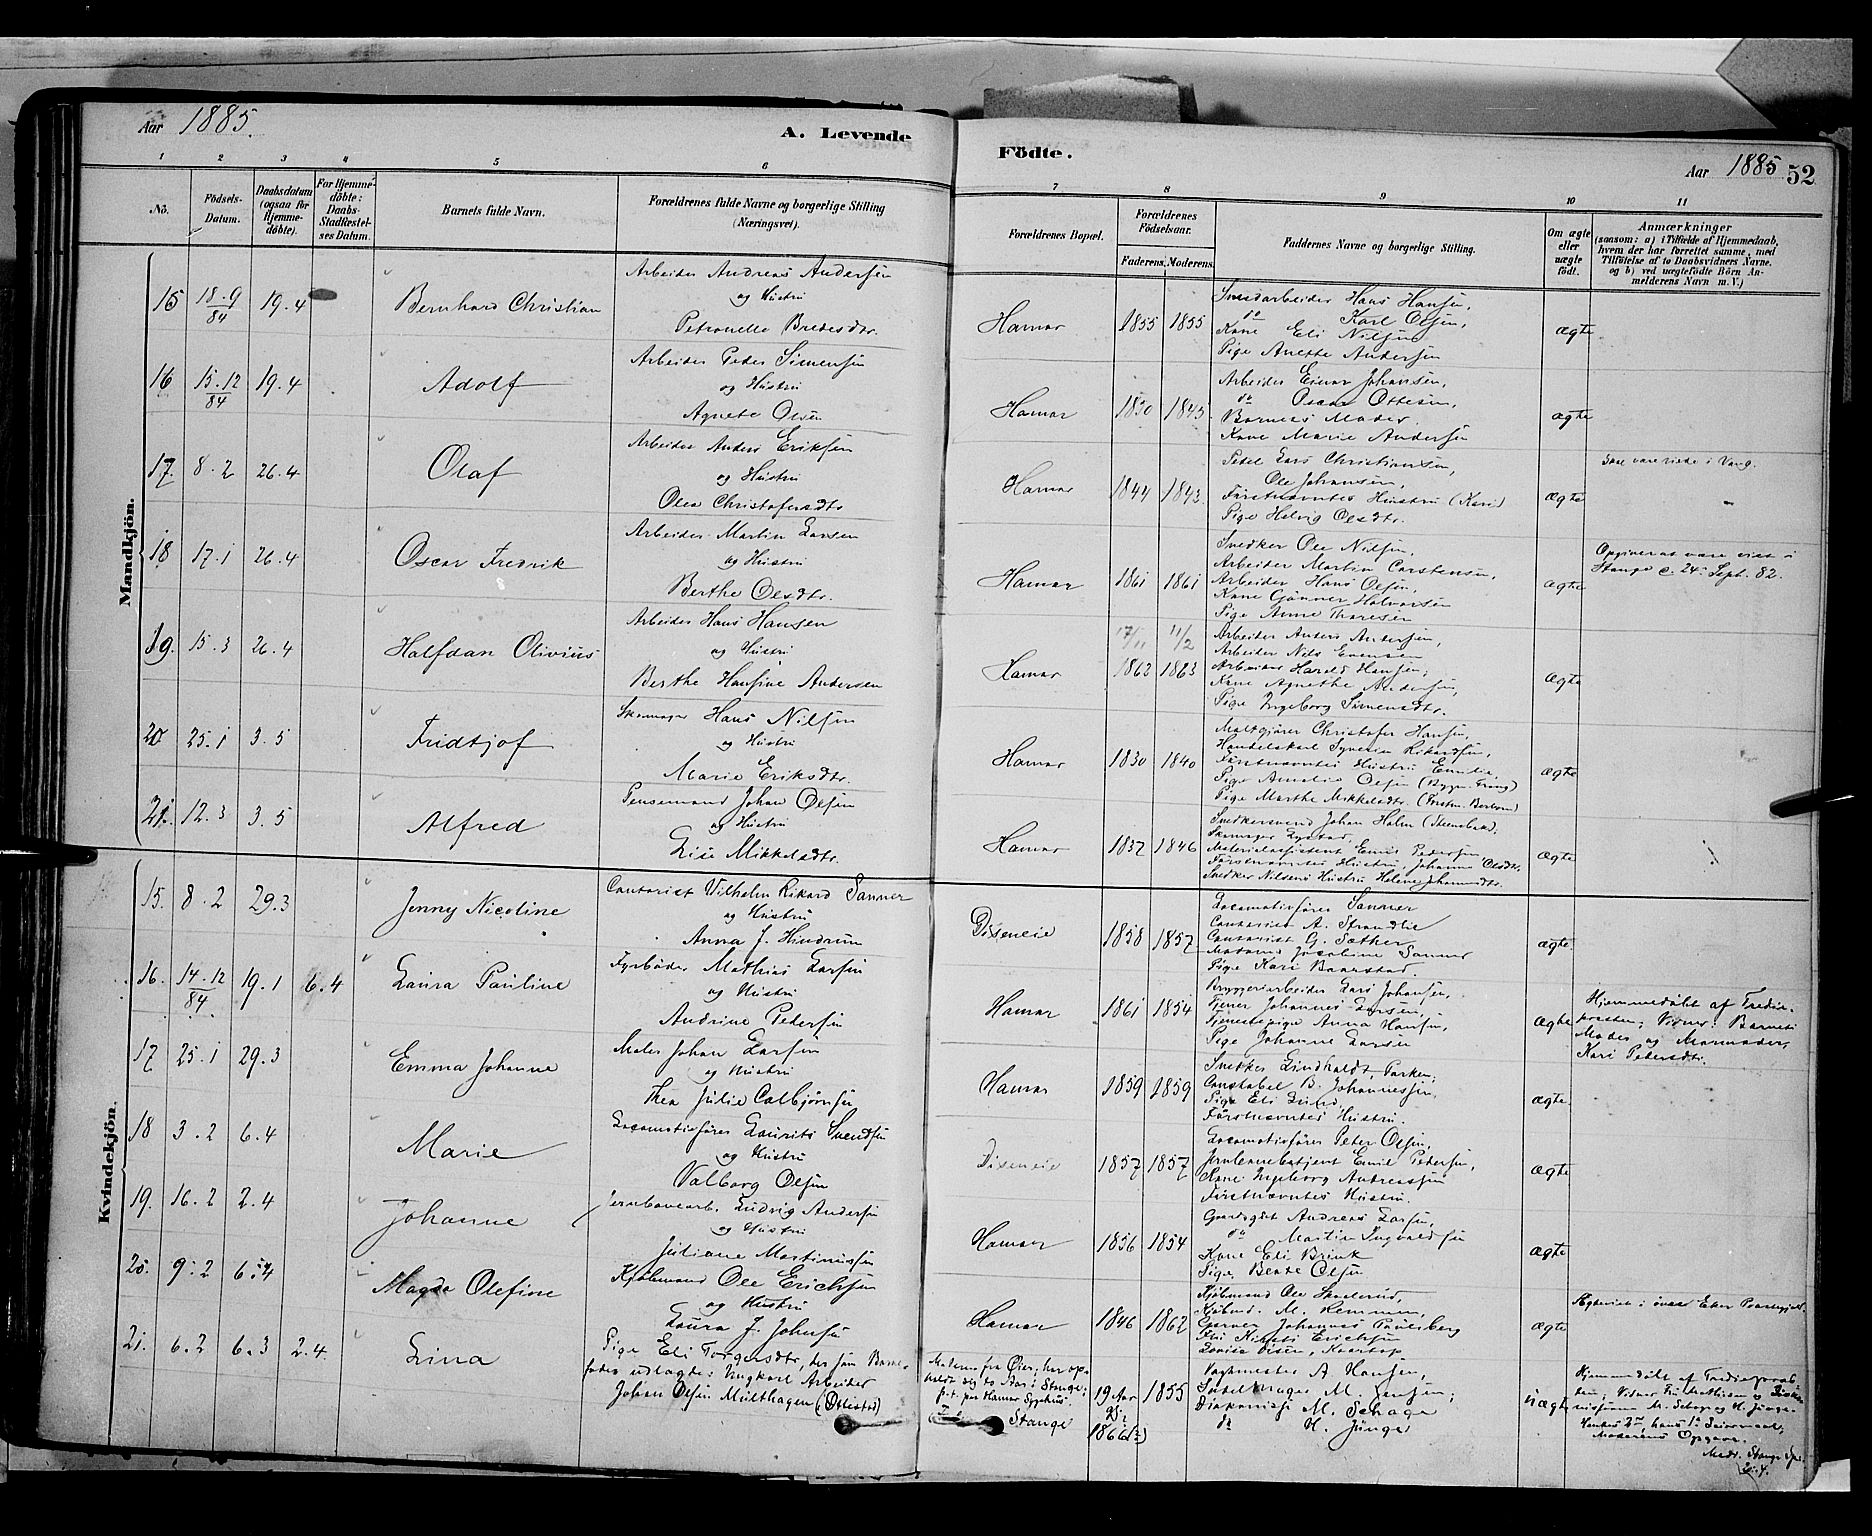 Aar 1885.
A. Levende
Födte.
Aar 1885
52
1 2 3 4 5 6
7 8 9 10 11
No.
Födsels-Datum.
Daabsdatum (ogsaa for Hjemmedöbte).
For Hjemmedöbte: Daabs-Stadfæstelses Datum.
Barnets fulde Navn.
Forældrenes fulde Navne og borgerlige Stilling (Næringsvei).
Forældrenes Bopæl.
Forældrenes Födselsaar.
Faderens. Moderens.
Faddernes Navne og borgerlige Stilling.
Om ægte eller uægte födt.
Anmærkninger
(saasom: a) i Tilfælde af Hjemmedaab, hvem der har forrettet samme, med Tilföielse af to Daabsvidners Navne, og b) ved uægtefödte Börn Anmelderens Navn m. V.)
Mandkjön.
15 18.9/84 19.4 Bernhard Christian
Arbeider Andreas Andersen
og Hustru
Petronelle Bredesdtr.
Hamar 1855 1855
Hans Hansen,
do Karl Olsen,
Kone Eli Nilsen
Pige Anette Andersen
ægte
16 15.12/84 19.4 Adolf
Arbeider Peder Simensen
og Hustru
Agnete Olsen
Hamar 1830 1845
Arbeider Einar Johansen,
do Oscar Ottesen,
Barnets Moder.
Kone Marie Andersen
ægte
17. 8.2 26.4 Olaf
Arbeider Anders Eriksen
og Hustru
Olea Christofersdtr
Hamar 1844 1843
Lars Christiansen,
Ole Johansen,
Förstnævntes Hustru (Kari)
Pige Helvig Olsdtr.
ægte
være viede i Vang.
18 17.1 26.4 Oscar Fredrik
Arbeider Martin Larsen
og Hustru
Berthe Olsdtr.
Hamar 1861 1861
Snedker Ole Nilsen,
Arbeider Martin Carstensen,
Arbeider Hans Olsen,
Kone Gjønner Halvorsen
Pige Anne Thoresen
ægte
Opgives at være viet i
Stange c. 24. Sept. 82.
19. 15.3 26.4 Halfdan Olivius
Arbeider Hans Hansen
og Hustru
Berthe Hansine Andersen
Hamar 17/11 1862 11/2 1863
Arbeider Anders Andersen,
Arbeider Nils Evensen
Arbeider Harald Hansen,
Kone Agnethe Andersen,
Pige Ingeborg Simensdtr.
ægte
20 25.1 3.5 Fridtjof
Skomager Hans Nilsen
og Hustru
Marie Eriksdtr.
Hamar 1830 1840
Maltgjører Christofer Hansen,
Handelskarl Syverin Rikardsen,
Förstnævntes Hustru Emilie,
Pige Amalie Olsen
Pige Marthe Mikkelsdtr.
ægte
21. 12.3 3.5 Alfred
Pensemand Johan Olsen
og Hustru
Lise Mikkelsdtr.
Hamar 1837 1846
Snedkersvend Johan Holm
Skomager
Emil Pedersen,
Förstnævntes Hustru, Johanne Olsdtr,
Snedker Nilsens Hustru Helene
ægte
Kvindekjön.
15. 8.2 29.3 Jenny Nicoline
Contorist Vilhelm Rikard Sanner
og Hustru
Anna J. Hindrum
Diseneie 1858 1857
Locomotivfører Sanner
Contorist A. Strandlie
Contorist G. Sæther
Madame Jacobine Sanner
Pige Kari Baarstad.
ægte
16. 14.12/84 19.1 6.4 Laura Pauline
Fyrbøder Mathias Larsen
og Hustru
Andrine Pedersen
Hamar 1861 1854
Bryggeriarbeider Lars Johansen,
Tjener Johannes Larsen,
Tjenestepige Anna Hansen,
Pige Johanne Larsen
ægte
Hjemmedöbt af
Vidner: Barnets
Moder og Mormoder,
Kari Pedersdtr.
17 25.1 29.3 Emma Johanne
Maler Johan Larsen
og Hustru
Thea Julie Calbjørnsen
Hamar 1859 1859
Snekker Lindholdt, Parken,
Constabel B. Johannessen,
Pige Eli Lund,
Förstnævntes Hustru.
ægte
18 3.2 6.4 Marie
Locomotivfører Laurits Svendsen
og Hustru
Valborg Olsen
Diseneie 1857 1857
Locomotivfører Peter Olsen,
Emil Petersen,
Kone Ingeborg Andreassen
Förstnævntes Hustru.
ægte
19. 16.2 2.4 Johanne
Jernbanearb. Ludvig Andersen
og Hustru
Juliane Martinussen
Hamar 1856 1854
Andreas Larsen,
do Martin Ingvaldsen
Kone Eli Brink
Pige Berte Olsen
ægte
20. 9.2 6.4 Magda Olefine
Kjøbmand Ole Erichsen
og Hustru
Laura J. Johnsen
Hamar 1846 1862
Kjøbmand Ole Skaderud,
Kjøbmd. M. Remmen,
Garver Johannes Paulsberg
Erichsen
Lovise Olsen,
ægte
Ægteviet i övre Eker Præstegjeld.
21. 6.2 6.3 2.4 Lina
Pige Eli Torgersdtr, der som Barne-
fader udlagte: Ungkarl Arbeider
Johan Olsen Milthagen (Ottestad)
Moderen fra Øier, har op-
holdt sig to Aar i Stange;
p.t. paa Hamar Sygehus.
Stange
19 Aar
1866(?) 1855
Vognmester A Hansen,
Sadelmager M. Jensen;
Diakonisse M. Schage
do H. Jünge
uægte
Hjemmedöbt af
Vidner
M. Schage og H. Jünge
Moderens Opgave.
Medd. Stange